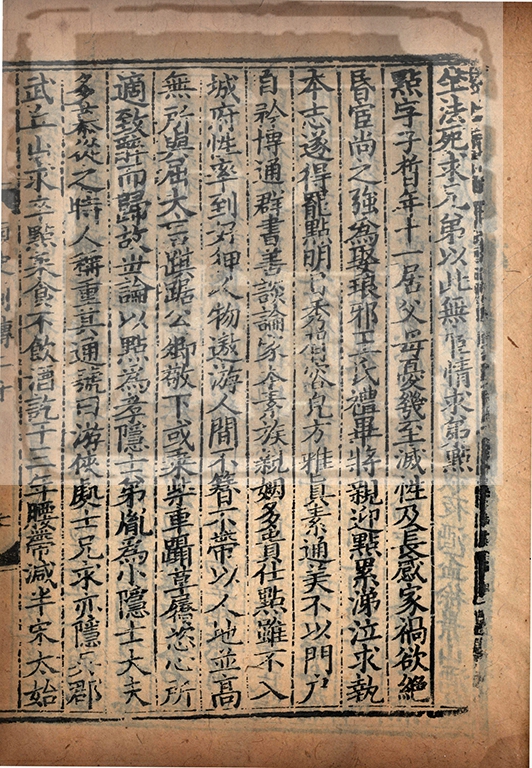 坐法死求兄弟以此無宦情求弟點
點字子晳年十一居父母憂幾至滅性及長感家禍欲絕
昏宦尚之強為娶琅邪王氏禮畢將親迎點累涕泣求執
本志遂得罷點明目秀眉容皃方雅真素通美不以門戶
自矜博通群書善談論家本素族親姻多貴仕點雖不入
城府性率到好狎人物遨游人間不簪不帶以人地並高
無所與屈大言踑踞公卿敬下或乘柴車躡草屩恣心所
適致醉而歸故世論以點為孝隱士弟胤為小隱士大夫
多慕從之時人稱重其通號曰游俠處士兄求亦隱吳郡
武丘山求卒點菜食不飲酒訖于三年腰帶減半宋太始